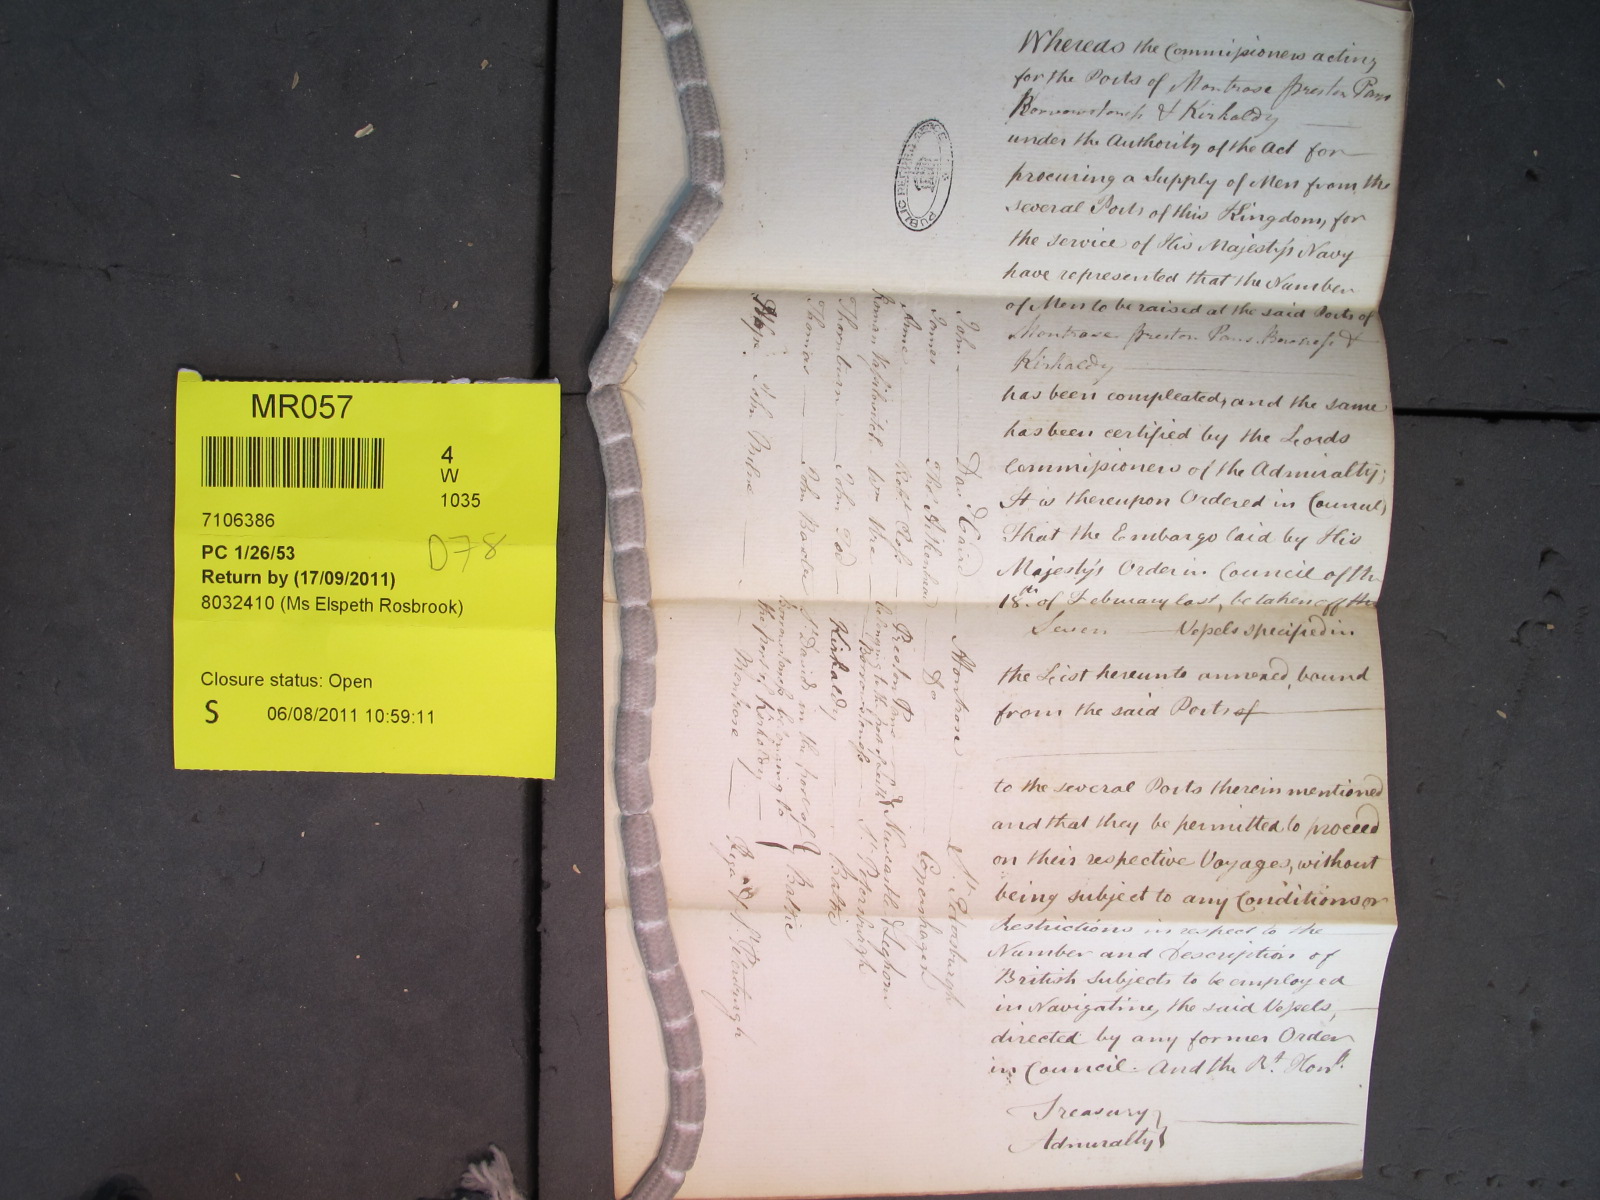 MR057
4
W
1035
7106386
D78
PC 1/26/53
Return by (17/09/2011)
8032410 (Ms Elspeth Rosbrook)
Closure status: Open
S 06/08/2011 10:59:11
Whereas the Commissioners acting
for the Ports of Montrose Preston Pans
Borrowstoness & Kirkaldy
under the Authority of the Act for
procuring a Supply of Men from the
several Ports of this Kingdom, for
the service of His Majesty's Navy
have represented that the Number
of Men to be raised at the said Ports of
Montrose Preston Pans Borness &
Kirkaldy
has been compleated, and the same
has been certified by the Lords
Commissioners of the Admiralty;
It is thereupon Ordered in Council,
That the Embargo laid by His
Majesty's Order in Council of the
18th. of February last, be taken off the
Seven Vessels specified in
the List hereunto annexed, bound
from the said Ports of
to the several Ports therein mentioned
and that they be permitted to proceed
on their respective Voyages, without
being subject to any Conditions or
Restrictions in respect to the
Number and Description of
British Subjects to be employed
in Navigating the said Vessels,
directed by any former Order
in Council. And the Rt. Honble.
Treasury
Admiralty
PUBLIC RECORD OFFICE
John Dad. Caird Montrose St. Petersburgh
James Thos. Aikenhead Do Copenhagen
Anne Robt. Ross Preston Pans Newcastle & Leghorn
belonging to the port of Leith
Borrowstoness St. Petersburgh
Thornturn John Tod Kirkaldy Baltic
Thomas John Baxter St. Davids in the port of Baltic
Borrowstoness belonging to
the port of Kirkaldy
Hope John Montrose Riga & St. Petersburgh